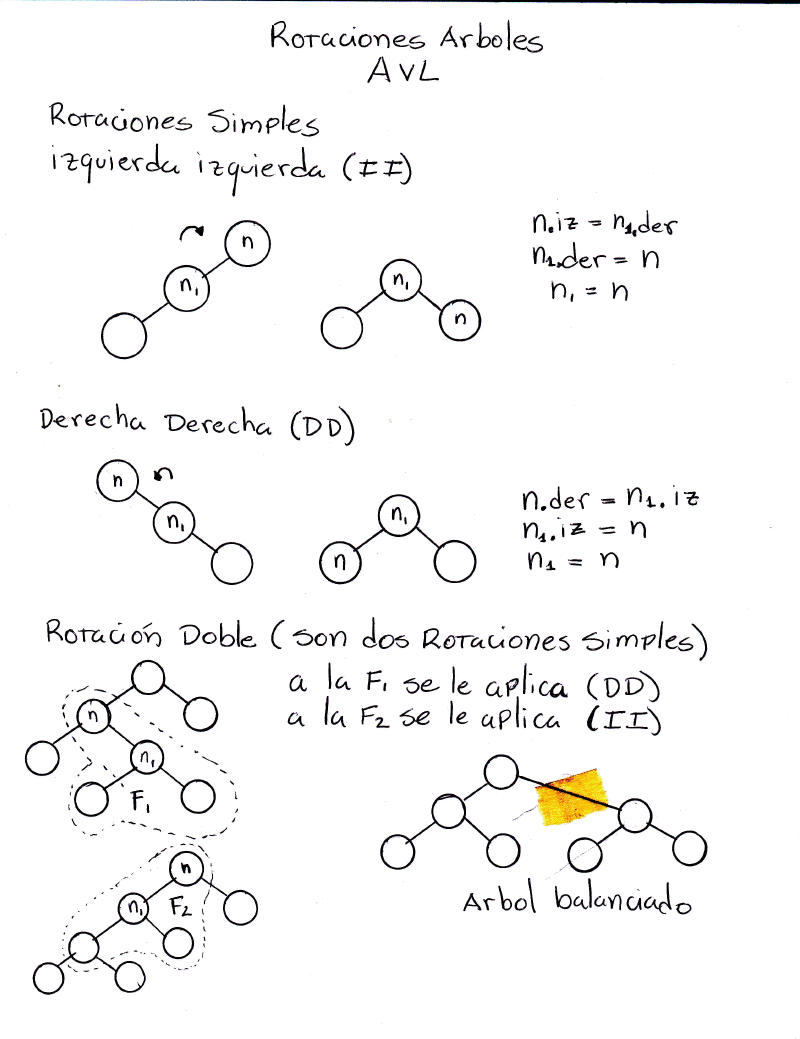 Rotaciones Arboles
AVL
Rotaciones Simples
izquierda izquierda (II)
n
n1
n.iz = n1.der
n1.der = n
n1 = n
n1
n
Derecha Derecha (DD)
n
n1
n1
n
n.der = n1.iz
n1.iz = n
n1 = n
Rotación Doble (son dos Rotaciones simples)
a la F1 se le aplica (DD)
a la F2 se le aplica (II)
n
n1
F1
n
n1
F2
Arbol balanciado